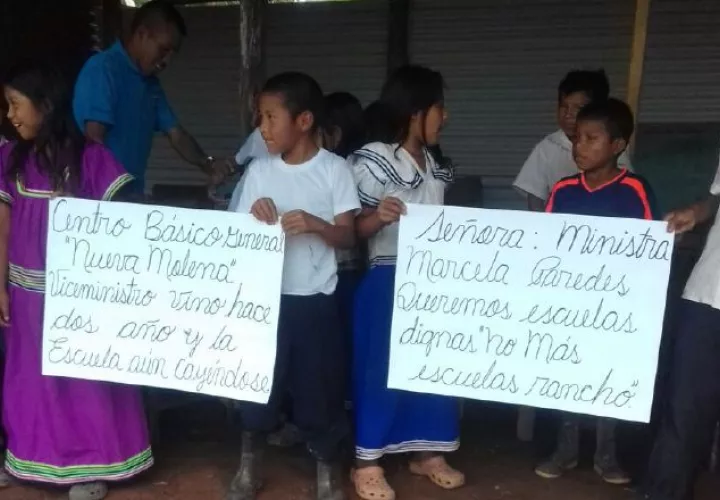 Centro Básico General
"Nueva Molena"
Viceministro vino hace
dos año y la
Escuela aún cayéndose
Señora: Ministra
Marcela Paredes
Queremos escuelas
dignas "no Más
escuelas rancho".